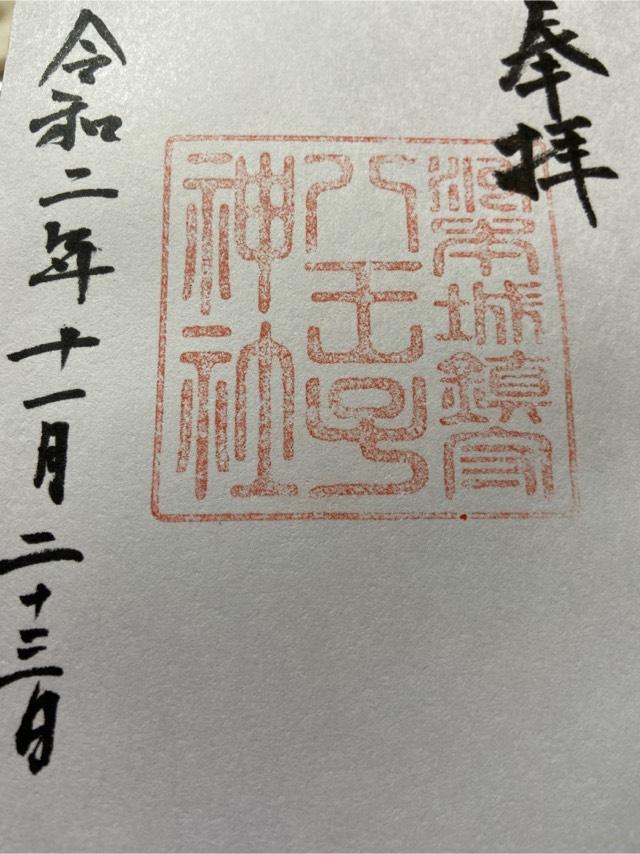 奉拝
洲本城鎮守
八王子
神社
令和二年十一月二十三日